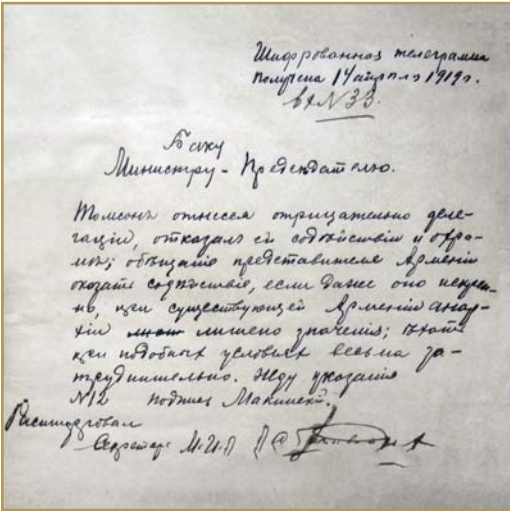 Шифрованная телеграмма
Получена 14 апреля 1919 г.
вх N 33.
Баку
Министру-Председателю.
Томсонъ отнесся отрицательно деле-
гаціи, отказалъ ей содѣйствіи и охра-
ны; обѣщаніе представителя Арменіи
оказать содѣйствіе, если даже оно искрен-
но, при существующей Арменіи анар-
хіи лишено значенія; ѣхать
при подобныхъ условіяхъ весьма за-
труднительно. Жду указанія
N12 подпись Макинскій.
Расшифровал
Секретарь М.И.Д